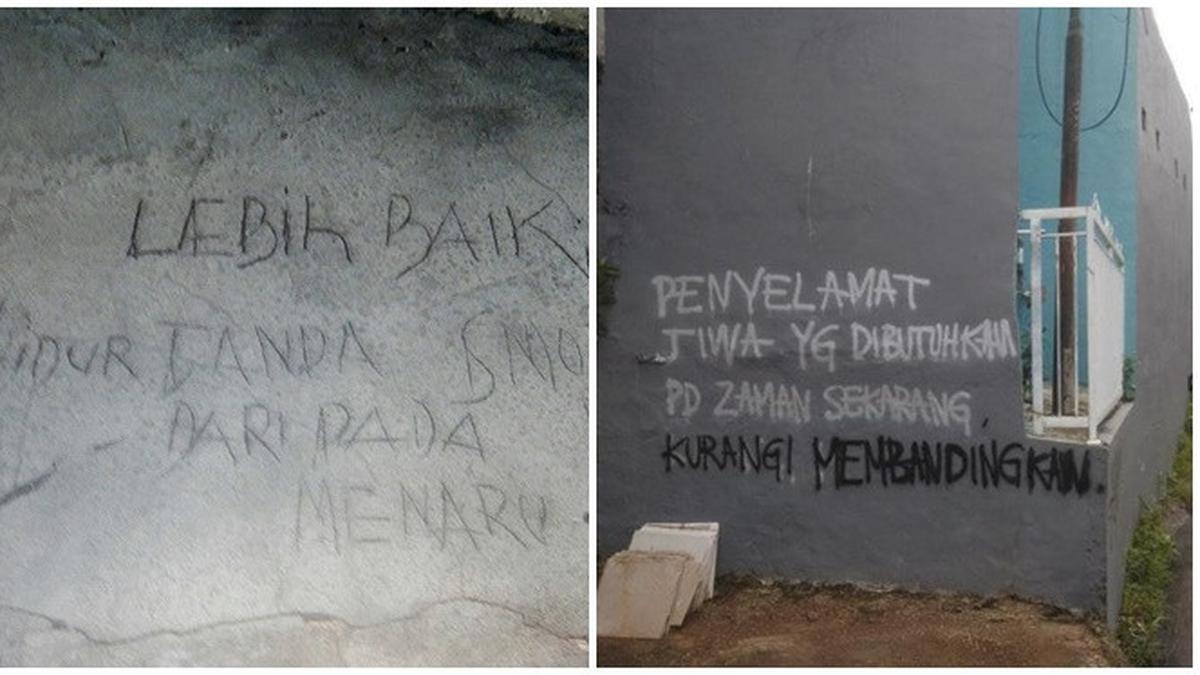 LEBIH BAIK
TIDUR TANDA
DARI PADA
MENARU
PENYELAMAT
JIWA YG DIBUTUHKAN
PD ZAMAN SEKARANG
KURANGI MEMBANDINGKAN.